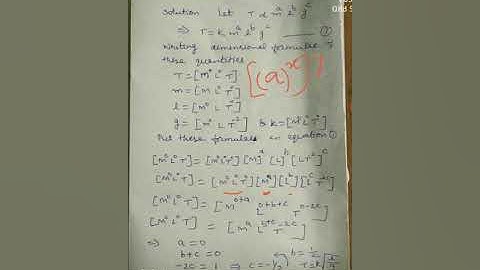 Solution Let T ∝ mᵃ lᵇ gᶜ
⇒ T = K mᵃ lᵇ gᶜ ——— ①
Writing dimensional formulae of
these quantities
T = [M⁰ L⁰ T]
[(a)ˣ]
m = [M L⁰ T⁰]
l = [M⁰ L T⁰]
g = [M⁰ L T⁻²] & K = [M⁰ L⁰ T⁰]
Put these formulae in equation ①
[M⁰ L⁰ T] = [M⁰ L⁰ T⁰] [M]ᵃ [L]ᵇ [LT⁻²]ᶜ
[M⁰ L⁰ T] = [M⁰ L⁰ T⁰] [Mᵃ] [Lᵇ] [Lᶜ T⁻²ᶜ]
[M⁰ L⁰ T] = [M⁰⁺ᵃ L⁰⁺ᵇ⁺ᶜ T⁰⁻²ᶜ]
[M⁰ L⁰ T] = [Mᵃ Lᵇ⁺ᶜ T⁻²ᶜ]
⇒ a = 0
b + c = 0 b = 1/2
-2c = 1 ⇒ c = -1/2 T = K